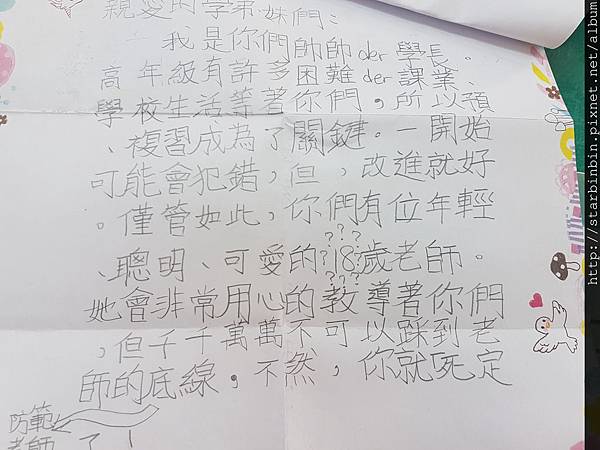 親愛的學弟、妹們：
我是你們帥帥der學長。
高年級有許多困難der課業、
學校生活等著你們，所以預
、複習成為了關鍵。一開始
可能會犯錯，但，改進就好
。僅管如此，你們有位年輕
、聰明、可愛的???18???歲老師。
她會非常用心的教導著你們
，但千千萬萬不可以踩到老
師的底線，不然，你就死定
了！
防範
老師
http://starbinbin.pixnet.net/album